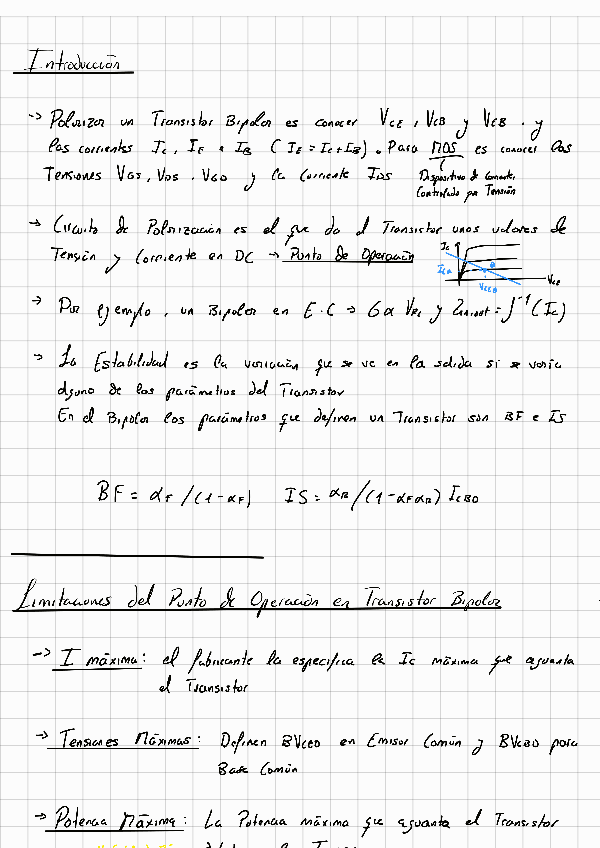 Introducción
→ Polarizar un Transistor Bipolar es conocer VCE, VCB y VEB. y
las corrientes IC, IE e IB (IE = IC + IB). Para MOS es conocer las
Tensiones VGS, VDS, VGD y la Corriente IDS
Dispositivo de Corriente
Controlado por Tensión
→ Circuito de Polarización es el que da al Transistor unos valores de
Tensión y Corriente en DC → Punto de Operación
IC
ICQ
Q
VCEQ
VCE
→ Por ejemplo, un Bipolar en E.C → G α VRL y Zin/out = f⁻¹(IC)
→ La Estabilidad es la variación que se ve en la salida si se varía
alguno de los parámetros del Transistor
En el Bipolar los parámetros que definen un Transistor son BF e IS
BF = αF/(1-αF) IS = αR/(1-αFαR) ICBO
Limitaciones del Punto de Operación en Transistor Bipolar
→ I máxima: el fabricante la especifica la IC máxima que aguanta
el Transistor
→ Tensiones Máximas: Definen BVCEO en Emisor Común y BVCBO para
Base Común
→ Potencia Máxima: La Potencia máxima que aguanta el Transistor